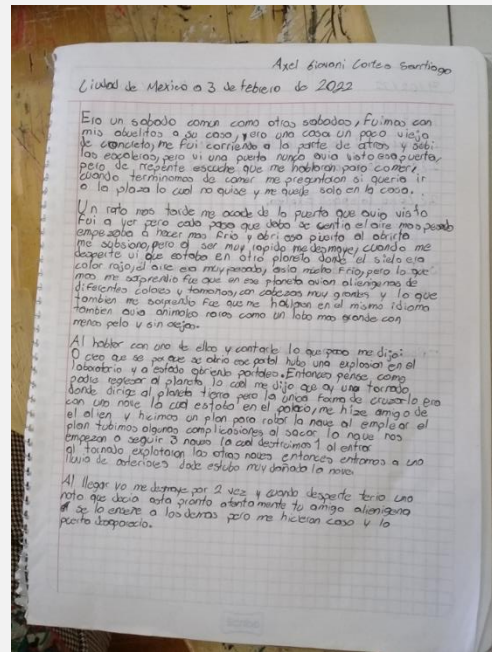 Axel Giovani Cortes Santiago
Ciudad de Mexico a 3 de febrero de 2022
Era un sabado comun como otros sabados, Fuimos con
mis abuelitos a su casa, era una casa un poco vieja
de concreto, me fui corriendo a la parte de atras y subi
las escaleras, pero vi una puerta nunca avia visto esa puerta,
pero de repente escuche que me hablaron para comer,
cuando terminamos de comer me preguntaron si queria ir
a la plaza lo cual no quise y me quede solo en la casa.
Un rato mas tarde me acode de la puerta que avia visto
Fui a ver pero cada paso que daba se sentia el aire mas pesado
empezaba a hacer mas frio y abri esa puerta al abrirla
me subsiono, pero al ser muy rapido me desmaye, cuando me
desperte vi que estaba en otro planeta donde el sielo era
color rojo, el aire era muy pesado, asia mucho frio, pero lo que
mas me sorprendio fue que en ese planeta avian alienigenas de
diferentes colores y tamaños, con cabezas muy grandes y lo que
tambien me sorprendio fue que hablaban en el mismo idioma
tambien avia animales raros como un lobo mas grande con
menos pelo y sin orejas.
Al hablar con uno de ellos y contarle lo que paso me dijo:
O creo que se por que se abrio ese portal hubo una explosion en el
laboratorio y a estado abriendo portales. Entonces pense como
podia regresar al planeta, lo cual me dijo que ay una tornado
donde dirige al planeta tierra pero la unica forma de cruzarlo era
con una nave la cual estaba en el palacio, me hize amigo de
el alien y hicimos un plan para robar la nave al emplear el
plan tubimos algunas complicasiones al sacar la nave nos
empezan a seguir 3 naves la cual destruimos 1 al entrar
al tornado explotaron las otras naves entonces entramos a una
lluvia de asteriodes dode estubo muy dañada la nave.
Al llegar yo me desmaye por 2 vez y cuando desperte tenia una
nota que decia asta pronto atentamente tu amigo alienigena
se lo enseñe a los demas pero me hicieron caso y la
puerta desaparecio.